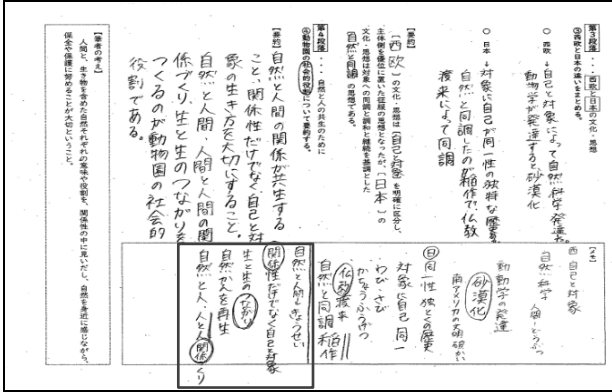 第3段落…西欧と日本の文化・思想
③西欧と日本の違いをまとめる。
○ 西欧→自己と対象によって自然科学発達。
動物学が発達すると砂漠化
○ 日本→対象に自己が同一性の独特な歴史。
自然と同調したのが稲作で、仏教
渡来によって同調
【要約】
〔西欧〕の文化・思想は〔自己と対象〕を明確に区分し、
主体側を優位に置いた征服の思想となったが、〔日本〕の
文化・思想は対象への同調と調和と継続を基調とした
〔自然と同調〕の思想である。
第4段落…自然と人の共生のために
④動物園の社会的役割について要約する。
【要約】
自然と人間の関係が共生する
こと、関係性だけでなく、自己と対
象の生き方を大切にすること。
自然と人間、人間と人間の関
係づくり、生と生のつながりを
つくるのが動物園の社会的
役割である。
【筆者の考え】
人間と、生き物を含めた自然それぞれの意味や役割を、関係性の中に見いだし、自然を身近に感じながら、
保全や保護に努めることが大切ということ。
【メモ】
西 自己と対象
自然科学
動物学の発達
砂漠化
南アメリカの
日 同一性 独とくの歴史
対象に自己 同一
わび・さび
かちょうふうげつ
仏教渡来
自然と同調 稲作
自然と人間きょうせい
関係性だけでなく自己と対象
生と生のつながり
自然かんを再生
自然と人、人と人関係づくり